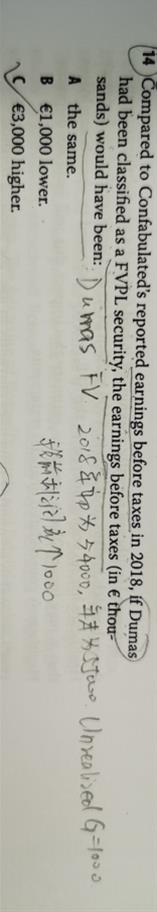 14 Compared to Confabulated's reported earnings before taxes in 2018, if Dumas
had been classified as a FVPL security, the earnings before taxes (in € thou-
sands) would have been: Dumas FV 2018年初为54000, 年末为55000. Unrealized G=1000
A the same.
B €1,000 lower. 税前利润就↑1000
C €3,000 higher.